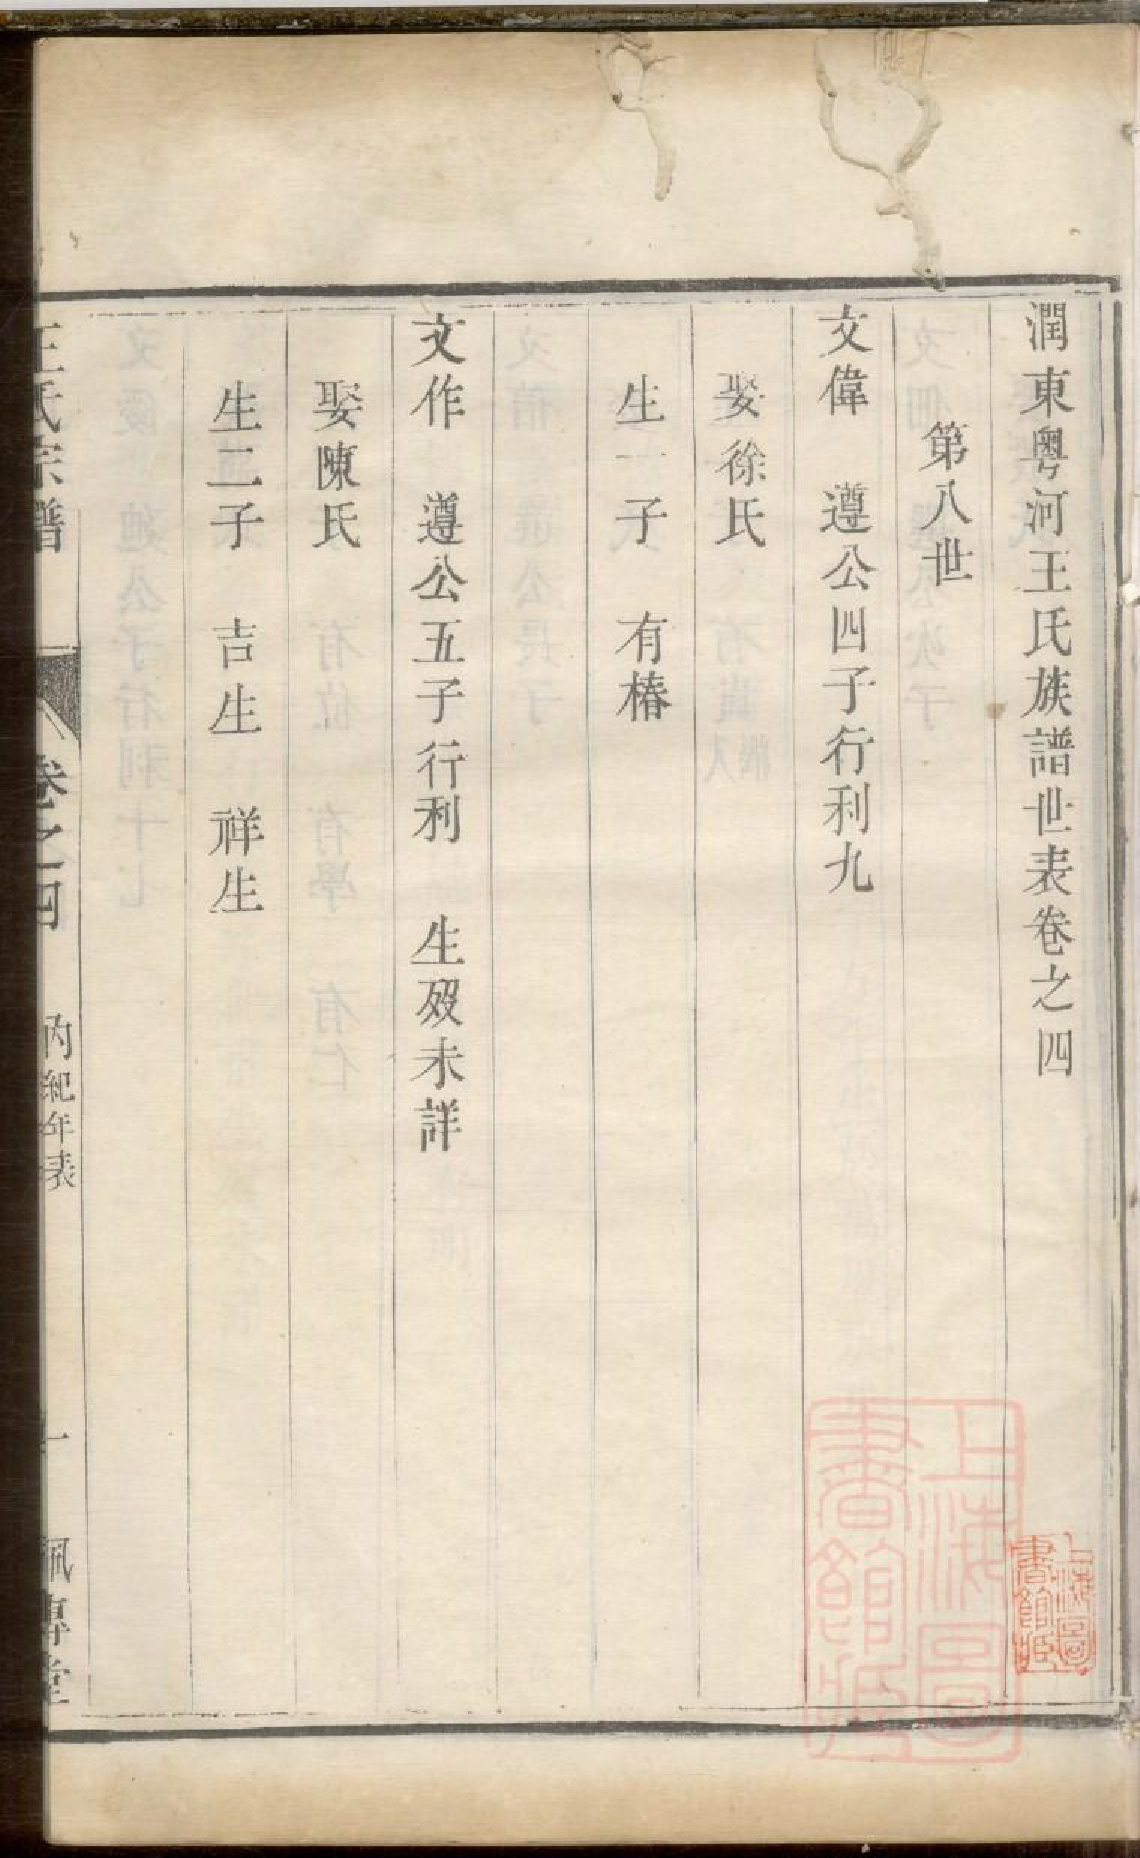 潤東粵河王氏族譜世表卷之四
第八世
文偉　遵公四子行利九
娶徐氏
生一子　有椿
文作　遵公五子行利　生歿未詳
娶陳氏
生二子　吉生　祥生
王氏宗譜　卷之四　內紀年表　一　佩專堂
上海圖書館藏
上海圖書館藏